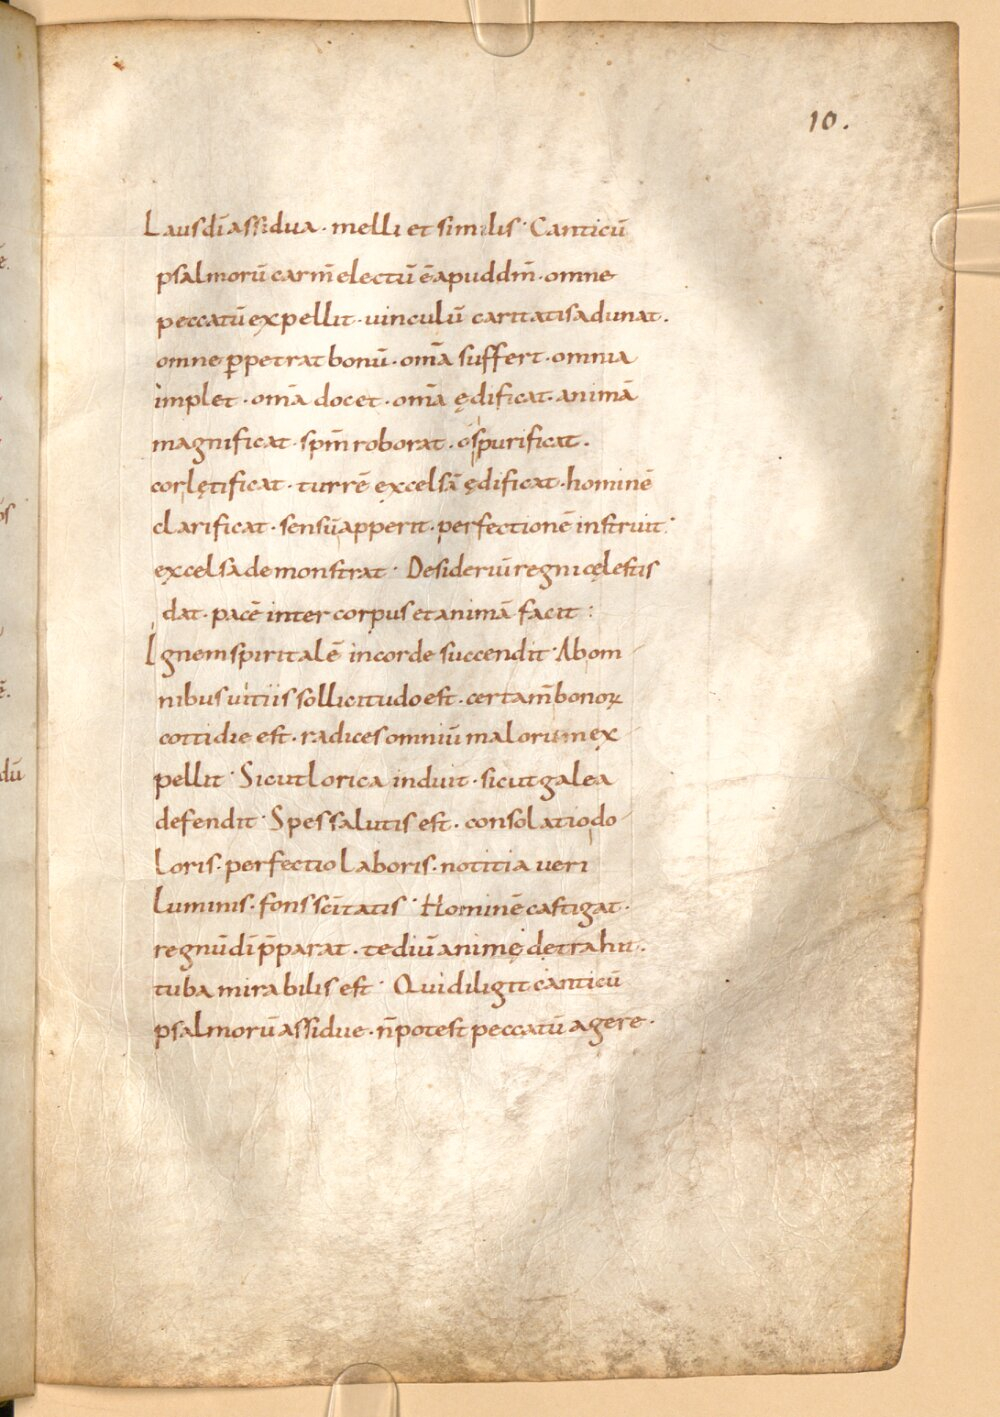 10.
Laus dī assidua · melli et similis · Canticū
psalmorū carm̄ electū ē apud dm̄ · omne
peccatū expellit · uinculū caritatis adunat ·
omne ꝑpetrat bonū · om̄a suffert · omnia
implet · om̄a docet · om̄a ędificat · animā
magnificat · spm̄ roborat · os purificat ·
cor lętificat · turrē excelsā ędificat · hominē
clarificat · sensū apperit · perfectionē instruit ·
excelsa demonstrat · Desideriū regni cęlestis
dat · pacē inter corpus et animā facit :
Ignem spiritalē in corde succendit · Ab om
nibus uitiis sollicitudo est · certam̄ bonoꝝ
cottidie est · radices omniū malorum ex
pellit · Sicut lorica induit · sicut galea
defendit · Spes salutis est · consolatio do
loris · perfectio laboris · notitia ueri
luminis · fons sc̄itatis · Hominē castigat ·
regnū dī p̄parat · tediū animę detrahit ·
tuba mirabilis est · Qui diligit canticū
psalmorū assidue · n̄ potest peccatū agere ·